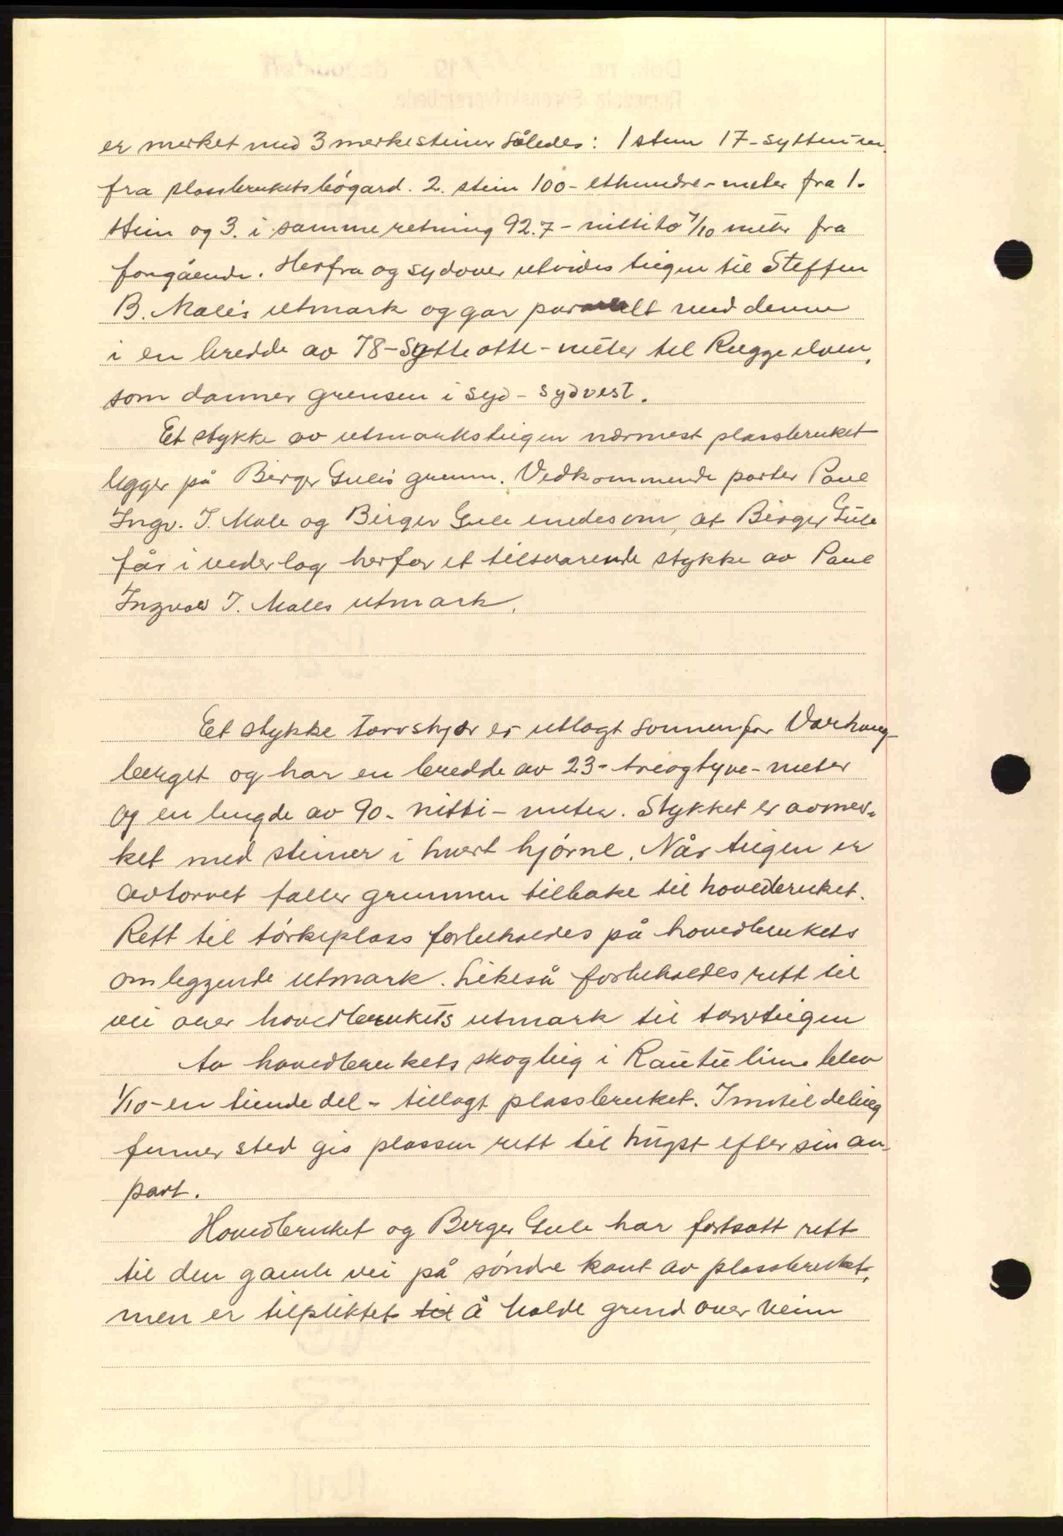 er merket med 3 merkesteiner således: 1 stein 17 - sytten m
fra plassbrukets bøgard. 2. stein 100 - ethundre - meter fra 1.
stein og 3. i samme retning 92.7 - nittito 7/10 meter fra
forgående. Herfra og sydover utvides teigen til Steffen
B. Males utmark og gar paralelt med denne
i en bredde av 78 - Sytti otte - meter til Rugge elven,
som danner grensen i syd - sydvest.
Et stykke av utmarksteigen nærmest plassbruket
ligger på Berger Gules grunn. Vedkommende parter Paul
Ingv. J. Male og Birger Gule enedes om, at Birger Gule
får i vederlag herfor et tilsvarende stykke av Paul
Ingval J. Males utmark.
Et stykke torvskjær er utlagt sønnenfor Varhaug-
berget og har en bredde av 23 - treogtyve - meter
og en lengde av 90 - nitti - meter. Stykket er avmer-
ket med steiner i hvert hjørne. Når teigen er
avtorvet faller grunnen tilbake til hovedbruket.
Rett til tørkeplass forbeholdes på hovedbrukets
omleggende utmark. Likeså forbeholdes rett til
vei over hovedbrukets utmark til torvteigen
Av hovedbrukets skogteig i lien blev
1/10 - en tiende del - tillagt plassbruket. Inntil deling
finner sted gis plassen rett til hugst efter sin an-
part.
Hovedbruket og Berger Gule har fortsatt rett
til den gamle vei på søndre kant av plassbruket,
men er tilpliktet til å holde grind over veien